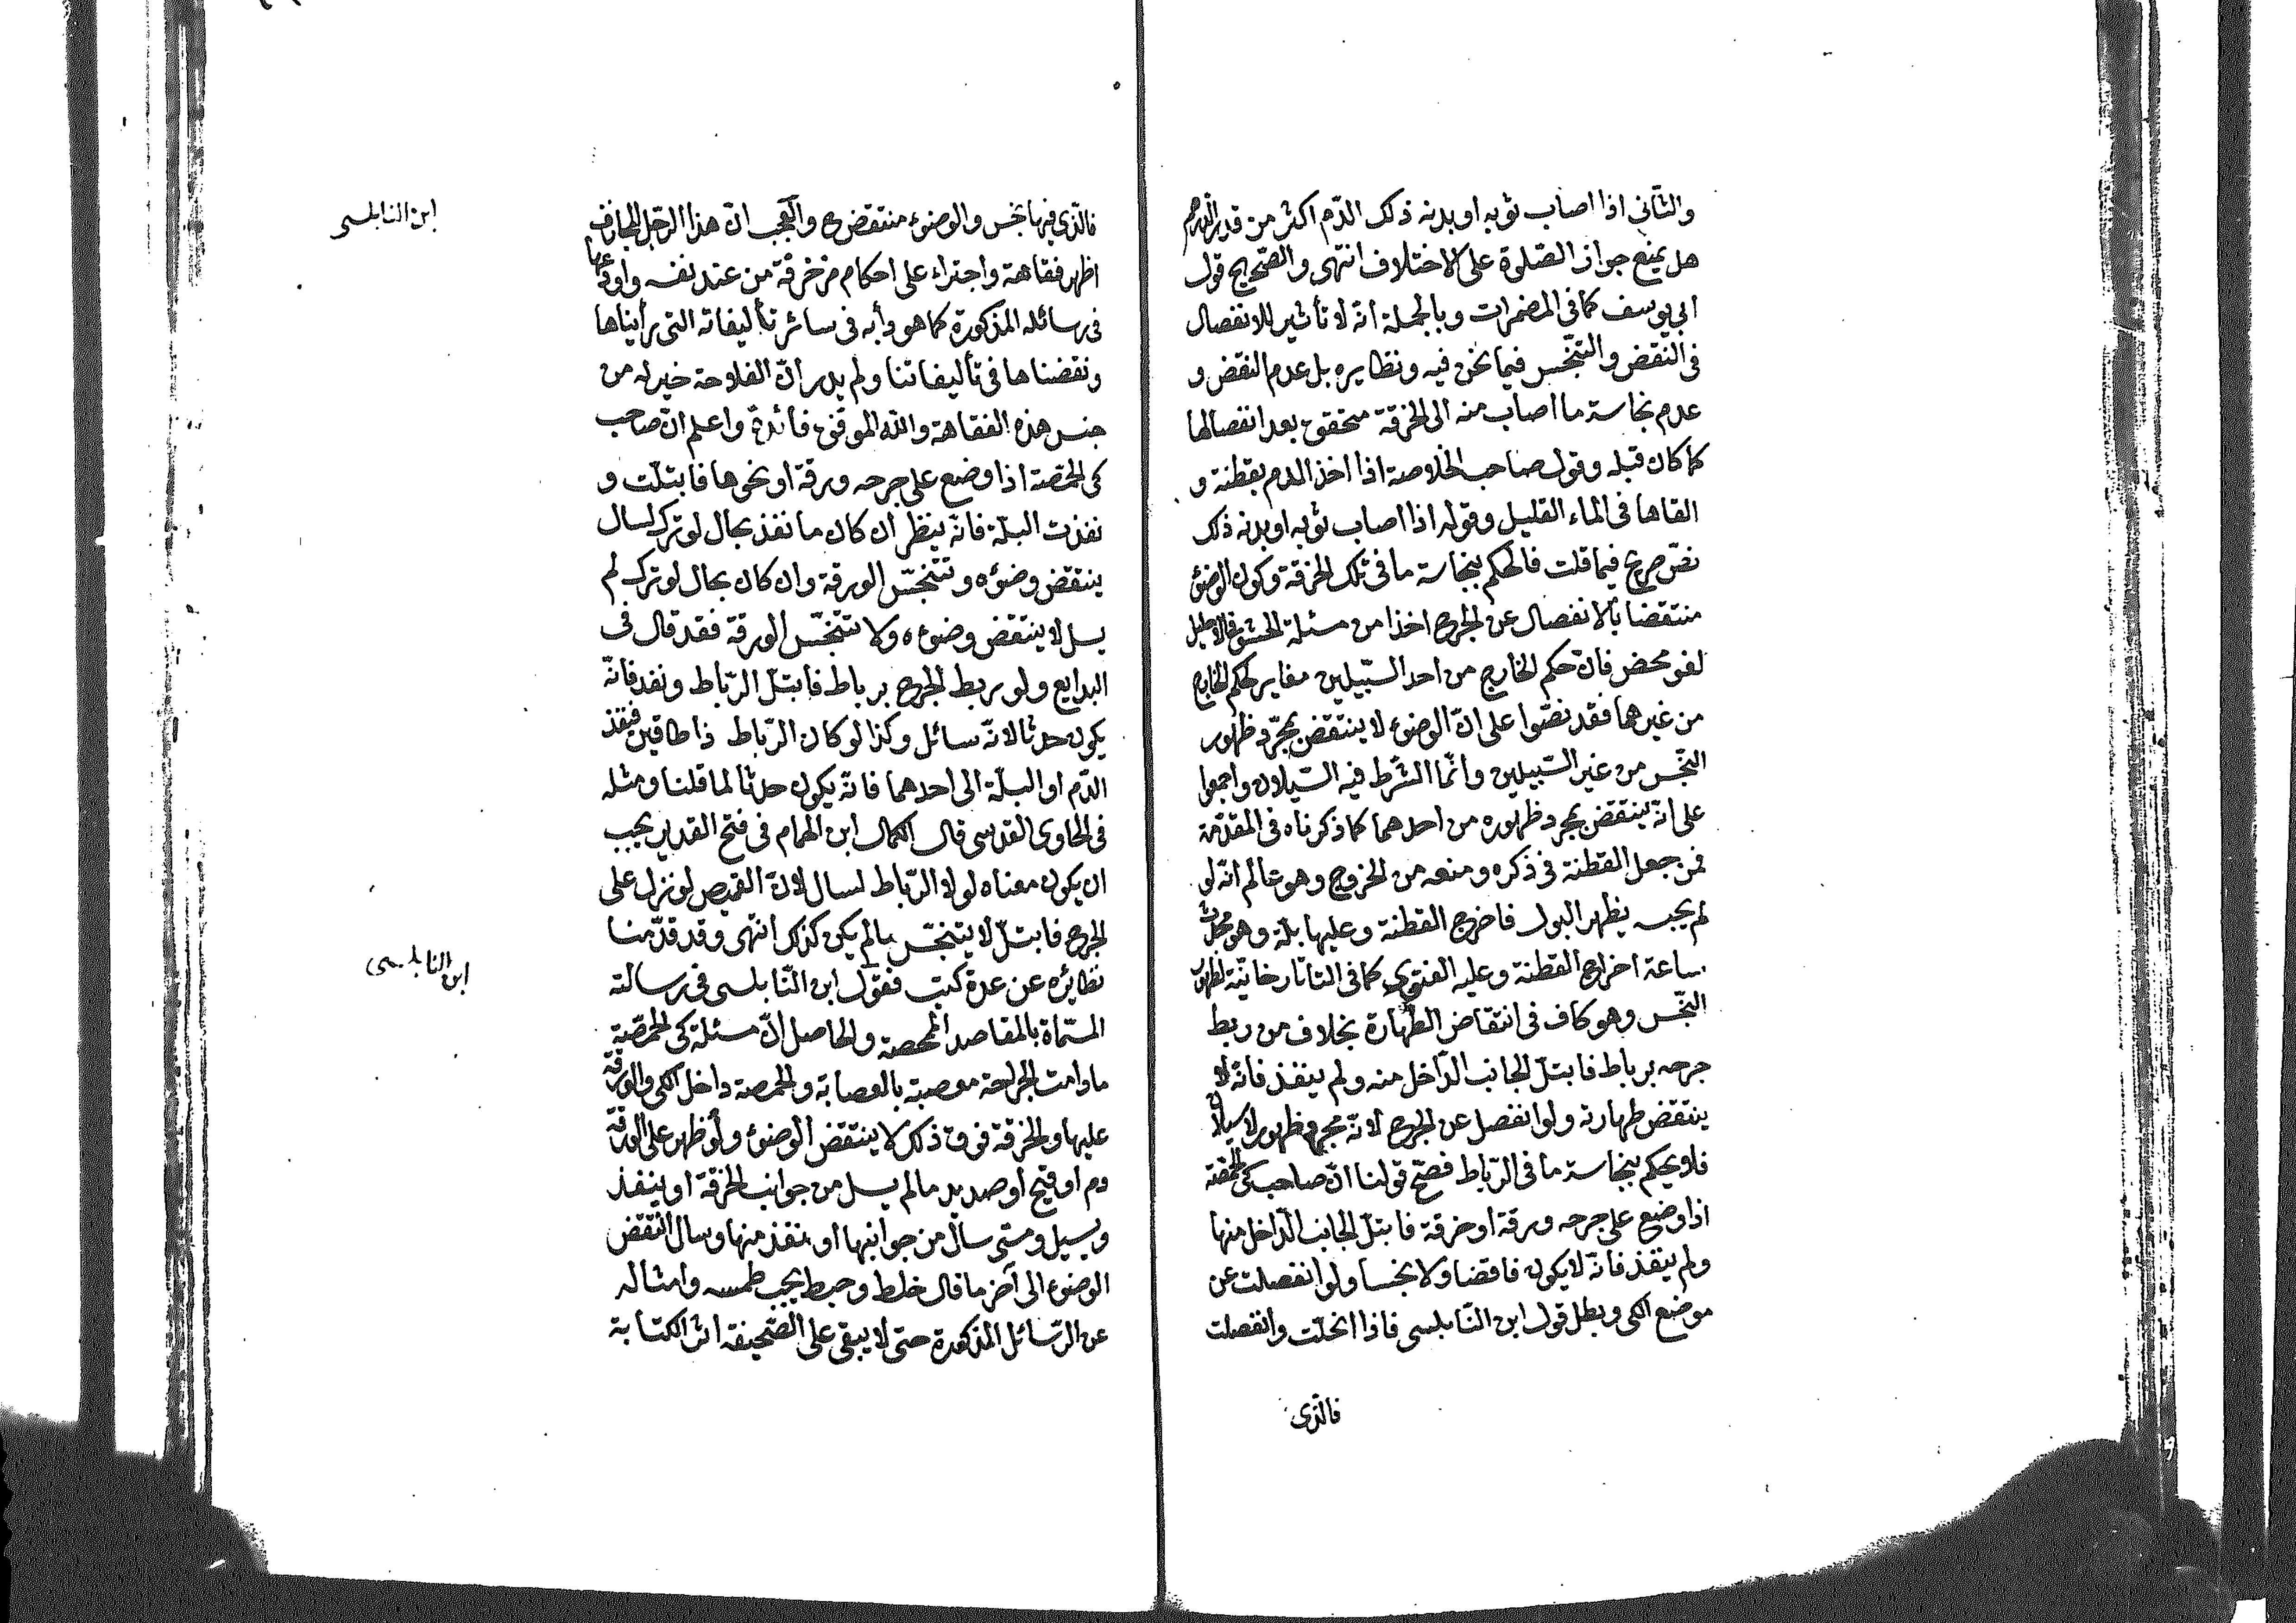 والثانى اذا اصاب ثوبه او بدنه ذلك الدّم اكثر من قدر الدرهم
هل يمنع جواز الصّلوة على الاختلاف انتهى والصّحيح قول
ابى يوسف كما فى المضمرات وبالجملة انّه لا تأثير للانفصال
فى النّقض والتّنجّس فيما نحن فيه ونظايره بل عدم النقض و
عدم نجاسة ما اصاب منه الى الخرقة متحقق بعد انفصالها
كما كان قبله وقول صاحب الخلاصة اذا اخذ الدم بقطنة و
القاها فى الماء القليل وقوله اذا اصاب ثوبه او بدنه ذلك
نصّ صريح فيما قلت فالحكم بنجاسة ما فى تلك الخرقة وكون الوضوء
منتقضا بالانفصال عن الجرح اخذا من مسئلة الحشو فى الاحليل
لغو محض فان حكم الخارج من احد السّبيلين مغاير لحكم الخارج
من غيرهما فقد نصّوا على انّ الوضوء لا ينتقض بمجرّد ظهور
النّجس من غير السّبيلين وانّما الشّرط فيه السّيلان واجمعوا
على انّه ينتقض بمجرد ظهوره من احدهما كما ذكرناه فى المقدّمة
فمن جعل القطنة فى ذكره ومنعه من الخروج وهو عالم انّه لو
لم يجب يظهر البول فاخرج القطنة وعليها بلّة وهو محدث
ساعة اخراج القطنة وعليه الفتوى كما فى التاتارخانيّة لظهور
النّجس وهو كاف فى انتقاض الطّهارة بخلاف من ربط
جرحه برباط فابتلّ الجانب الدّاخل منه ولم ينفذ فانّه لا
ينتقض طهارته ولو انفصل عن الجرح لانّه مجرد ظهور لا سيلان
فلا يحكم بنجاسة ما فى الرّباط فصحّ قولنا انّ صاحب كى الحمّصة
اذا وضع على جرحه ورقة او خرقة فابتلّ الجانب الدّاخل منها
ولم ينفذ فانّه لا يكون ناقضا ولا نجسا ولو انفصلت عن
موضع الكى وبطل قول ابن النّابلسى فاذا انحلّت وانفصلت
فالّذى
فالّذى فيها نجس والوضوء منتقض والعجب انّ هذا الرّجل المجازف
اظهر فقاهة واجتراء على احكام مزخرفة من عند نفسه واودعها
فى رسائله المذكورة كما هو دأبه فى سائر تأليفاته التى رأيناها
ونقضناها فى تأليفاتنا ولم يدر انّ الفلاحة خير له من
جنس هذه الفقاهة واللّه الموفق فائدة واعلم انّ صاحب
كى الحمّصة اذا وضع على جرحه ورقة او نحوها فابتلّت و
نفذت البلّة فانّه ينظر ان كان ما نفذ بحال لو ترك لسال
ينتقض وضوءه وتتنجّس الورقة وان كان بحال لو ترك لم
يسل لا ينتقض وضوءه ولا تتنجّس الورقة فقد قال فى
البدايع ولو ربط الجرح برباط فابتلّ الرّباط ونفذ فانّه
يكون حدثا لانّه سائل وكذا لو كان الرّباط ذا طاقين فنفذ
الدّم او البلّة الى احدهما فانّه يكون حدثا لما قلنا ومثله
فى الحاوى القدسى قال الكمال ابن الهمام فى فتح القدير يجب
ان يكون معناه لولا الرّباط لسال لانّ القميص لو نزل على
الجرح فابتلّ لا يتنجّس ما لم يكن كذلك انتهى وقد قدّمنا
نظائره عن عدة كتب فقول ابن النّابلسى فى رسالته
المسمّاة بالمقاصد الممحصة والحاصل انّ مسئلة كى الحمّصة
ما دامت الجراحة معصبة بالعصابة والحمصة داخل الكى والورقة
عليها والخرقة فوق ذلك لا ينتقض الوضوء ولو ظهر على الورقة
دم او قيح او صديد ما لم يسل من جوانب الخرقة او ينفذ
ويسيل ومتى سال من جوانبها او نفذ منها وسال انتقض
الوضوء الى آخر ما قال خلط وخبط يجب طمسه وامثاله
عن الرّسائل المذكورة حتى لا يبقى على الصّحيفة اثر الكتابة
ابن النابلسى
ابن النابلسى